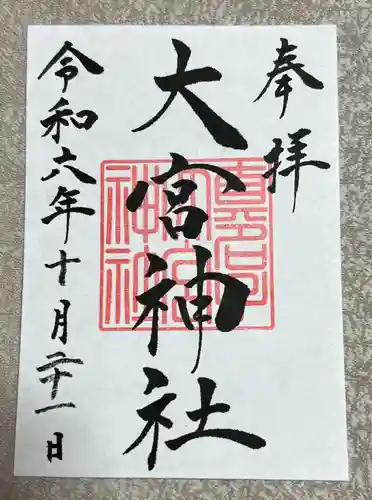 奉拝
大宮神社
令和六年十月二十一日